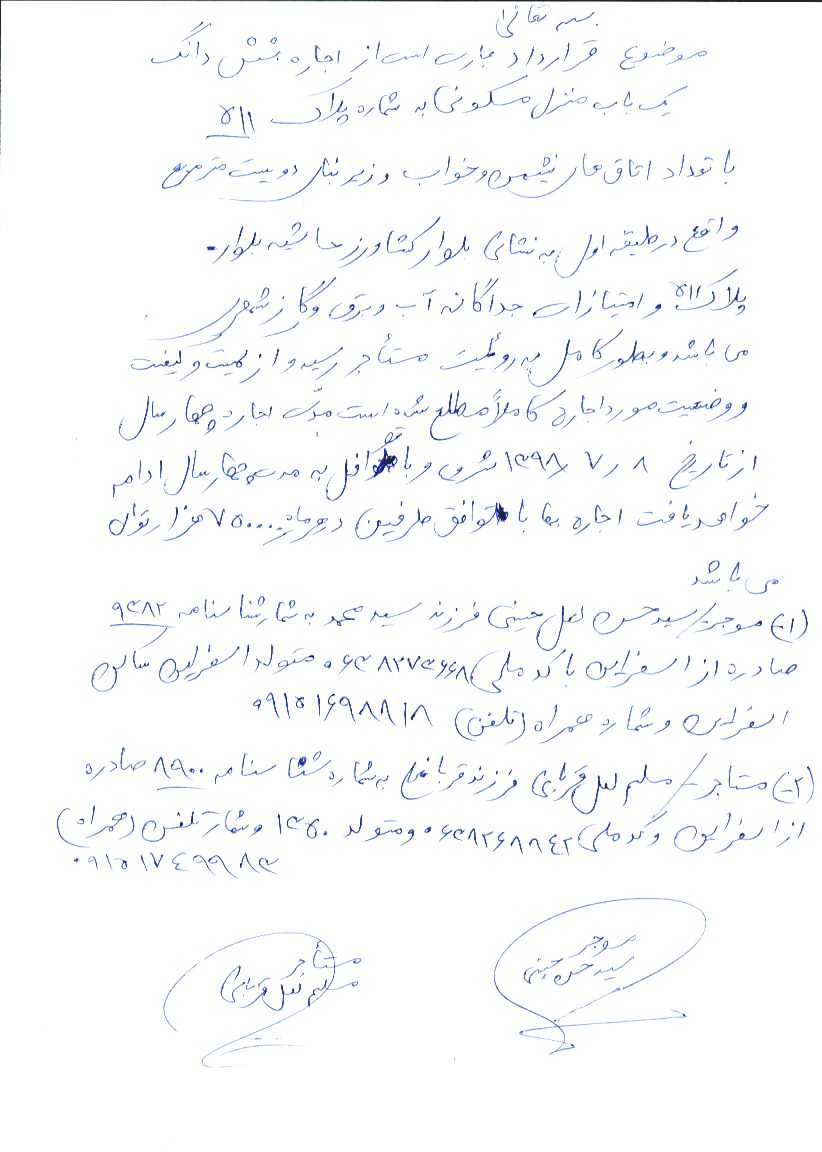 بسمه تعالی
موضوع قرارداد عبارت است از اجاره شش دانگ
یک باب منزل مسکونی به شماره پلاک ۵۱۱
با تعداد اتاق های نشیمن و خواب و زیر بنای دویست متر مربع
واقع در طبقه اول به نشانی بلوار کشاورز حاشیه بلوار -
پلاک ۵۱۱ و امتیازات جداگانه آب و برق و گاز شهری
می باشد و بطور کامل به روئیت مستأجر رسیده و از کمیت و کیفیت
و وضعیت مورد اجاره کاملاً مطلع شده است مدّت اجاره چهار سال
از تاریخ ۸ ر ۷ ر ۱۳۹۸ شروع و با توافق به مدت چهار سال ادامه
خواهد یافت اجاره بها با توافق طرفین در هر ماه ۷۵۰۰۰۰ هزار تومان
می باشد
(۱- موجر / سید حسن لعل حسینی فرزند سید محمد به شمار شناسنامه ۹۳۸۲
صادره از اسفراین با کد ملی ۰۶۳۸۲۷۳۶۶۸ متولد اسفراین ساکن
اسفراین و شماره همراه (تلفن) ۰۹۱۵۱۶۹۸۸۱۸
(۲- مستاجر / مسلم لعل قربانی فرزند قربانعلی به شماره شناسنامه ۸۹۰۰ صادره
از اسفراین و کد ملی ۰۶۳۸۲۶۸۸۴۲ و متولد ۱۳۵۰ و شماره تلفن (همراه)
۰۹۱۵۱۷۴۹۹۸۳
موجر
سید حسن حسینی
مستأجر
مسلم لعل قربانی